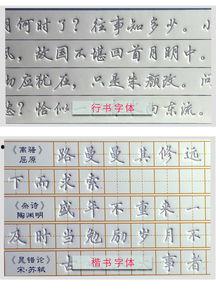 何时了？往事知多少。小
风，故国不堪回首月明中。
应犹在，只是朱颜改。问
愁？恰似一 向东流。
行书字体
《离骚》
屈原
路曼曼其修远
下而求索
《杂诗》
陶渊明
盛年不重来一
及时当勉励岁月不
《晁错论》
宋·苏轼
古 事者
楷书字体